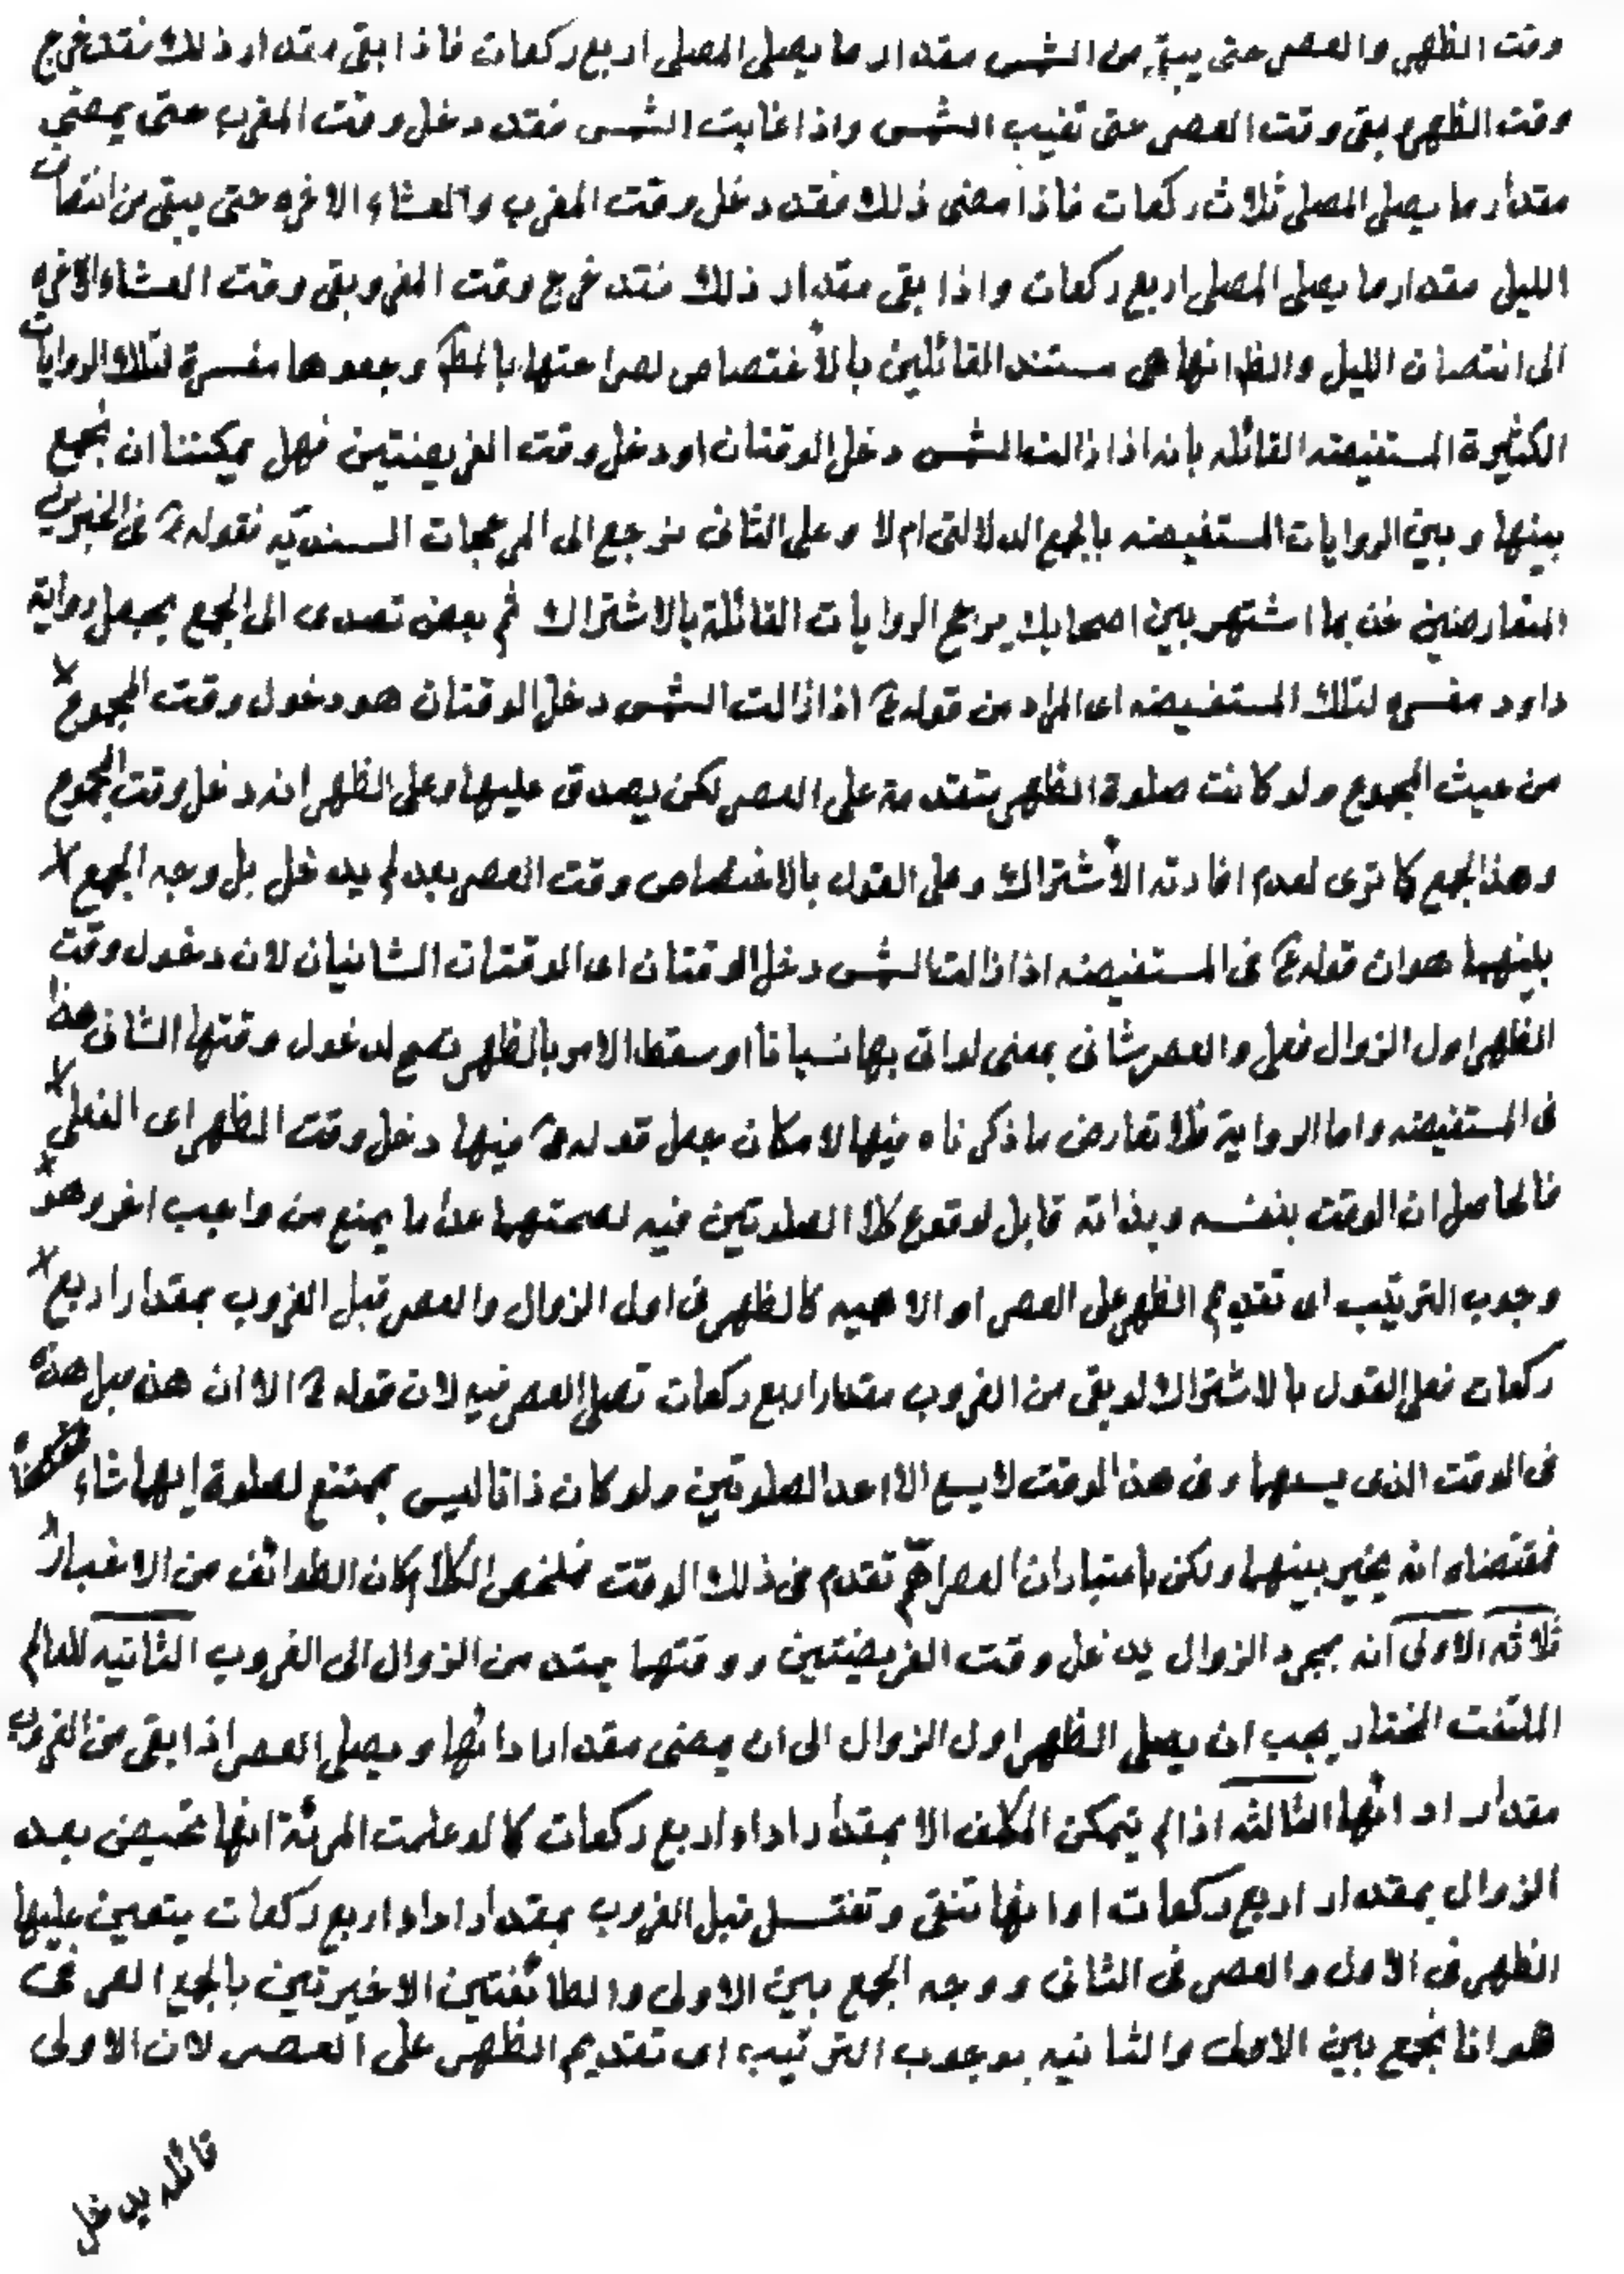 وقت الظهر والعصر حتى يبقى من الشمس مقدار ما يصلى المصلى اربع ركعات فاذا بقى مقدار ذلك فقد خرج
وقت الظهر وبقى وقت العصر حتى تغيب الشمس واذا غابت الشمس فقد دخل وقت المغرب حتى يمضي
مقدار ما يصلى المصلى ثلاث ركعات فاذا مضى ذلك فقد دخل وقت المغرب والعشاء الاخره حتى يبقى من انتصاف
الليل مقدار ما يصلى المصلى اربع ركعات واذا بقى مقدار ذلك فقد خرج وقت المغر وبقى وقت العشاء الاخره
الى انتصاف الليل والظ انها هى مستند القائلين بالاختصاص لصراحتها بالمط وجعلوها مفسرة لتلك الروايات
الكثيرة المستفيضه القائله بانه اذا زالت الشمس دخل الوقتان او دخل وقت الفريضتين فهل يمكننا ان نجمع
بينها وبين الروايات المستفيضه بالجمع الدلالتى ام لا وعلى الثانى نرجع الى المرجحات السنديّه فقوله ع فى الخبرين
المتعارضين خذ بما اشتهر بين اصحابك يرجح الروايات القائلة بالاشتراك ثم بعض تصدى الى الجمع بجعل رواية
داود مفسره لتلك المستفيضه اى المراد من قوله ع اذا زالت الشمس دخل الوقتان هو دخول وقت المجموع
من حيث المجموع ولو كانت صلوة الظهر متقدمة على العصر لكن يصدق عليها وعلى الظهر انه دخل وقت المجموع
وهذا الجمع كما ترى لعدم افادته الاشتراك وعلى القول بالاختصاص وقت العصر بعد لم يدخل بل وجه الجمع
بينهما هو ان قوله ع فى المستفيضه اذا زالت الشمس دخل الوقتان اى الوقتان الشانيان لان دخول وقت
الظهر اول الزوال فعلى والعصر شانى بمعنى لو اتى بها نسيانا او سقط الامر بالظهر تصح لدخول وقتها الشانى هذا
فى المستفيضه واما الرواية فلا تعارض ما ذكرناه فيها لامكان جعل قوله ع فيها دخل وقت الظهر اى الفعلى
فالحاصل ان الوقت بنفسه وبذاته قابل لوقوع كلا الصلوتين فيه لصحتهما عدا ما يمنع من واجب اخر وهو
وجوب الترتيب اى تقديم الظهر على العصر او الاهميه كالظهر فى اول الزوال والعصر قبل الغروب بمقدار اربع
ركعات فعلى القول بالاشتراك لو بقى من الغروب مقدار اربع ركعات تصلى العصر فيه لان قوله ع الا ان هذه قبل هذه
فى الوقت الذى يسعهما وفى هذا الوقت لا يسع الا احد الصلوتين ولو كان ذاتا ليس بممتنع لصلوة ايهما شاء
فمقتضاه انه يخير بينهما ولكن باعتبار ان العصر اهم تقدم فى ذلك الوقت فملخص الكلام كان الطوائف من الاخبار
ثلاثه الاولى انه بمجرد الزوال يدخل وقت الفريضتين ووقتهما يمتد من الزوال الى الغروب الثانيه للعالم
الملتفت المختار يجب ان يصلى الظهر اول الزوال الى ان يمضى مقدار ادائها ويصلى العصر اذا بقى من الغروب
مقدار ادائها الثالثه اذا لم يتمكن المكلف الا بمقدار اداء اربع ركعات كما لو علمت المرئة انها تحيض بعد
الزوال بمقدار اربع ركعات او انها تنقى وتغتسل قبل الغروب بمقدار اداء اربع ركعات يتعين عليها
الظهر فى الاول والعصر فى الثانى ووجه الجمع بين الاولى والطائفتين الاخيرتين بالجمع العرفى
هو انا نجمع بين الاولى والثانيه بوجوب الترتيب اى تقديم الظهر على العصر لان الاولى
قائله يدخل